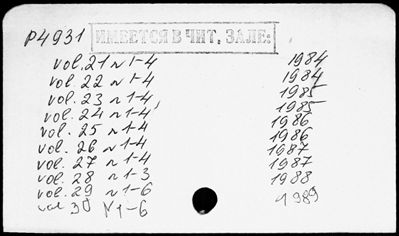 P4931
ИМЕЕТСЯ В ЧИТ. ЗАЛЕ:
vol. 21 N 1-4 1984
vol. 22 N 1-4 1984
vol. 23 N 1-4 1985
vol. 24 N 1-4, 1985
vol. 25 N 1-4 1986
vol. 26 N 1-4 1986
vol. 27 N 1-4 1987
vol. 28 N 1-3 1987
vol. 29 N 1-6 1988
vol 30 N 1-6 1989